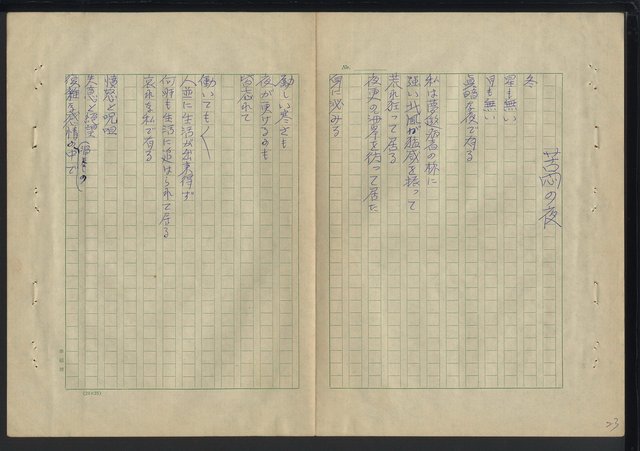 苦悶の夜
冬
星も無い
月も無い
真暗な夜で有る
私は夢遊病者の様に
強い北風が猛威を振って
荒れ狂って居る
夜更の海岸を彷って居た
身に沁みる
激しい寒さも
夜が更けるのも
忘れて
働いても〱
人並に生活が出来得ず
何時も生活に追はられて居る
哀れな私で有る
憤怒と呪咀
失意と絶望
複雑な感情の中で
No.
(24×25)
23